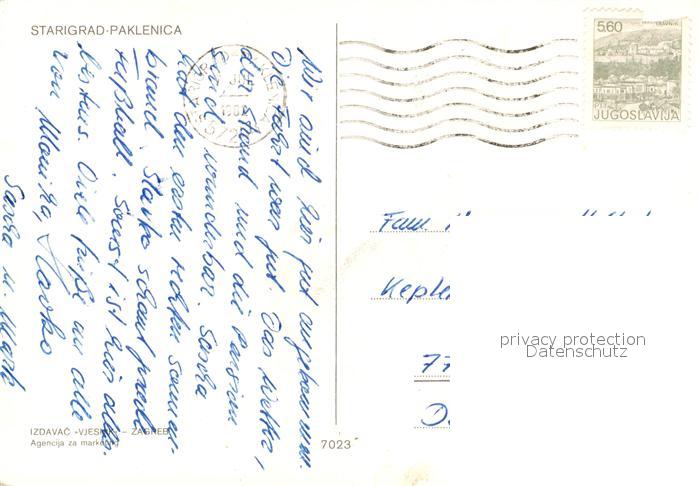 STARIGRAD-PAKLENICA
Wir sind hier gut angekommen.
Die Fahrt war gut. Das Wetter,
der Strand und die Pension
sind wunderbar. Sascha
hat den ersten richtigen Sonnen-
brand. Slavko schaut gerade
Fußball. Sonst ist hier alles
bestens. Viele Grüße an alle
von Monika, Slavko
Sascha u. Mark
IZDAVAČ «VJESNIK» - ZAGREB
Agencija za marketing
7023
5,60
TRAVNIK
PTT
JUGOSLAVIJA
Keple
77
D
privacy protection
Datenschutz